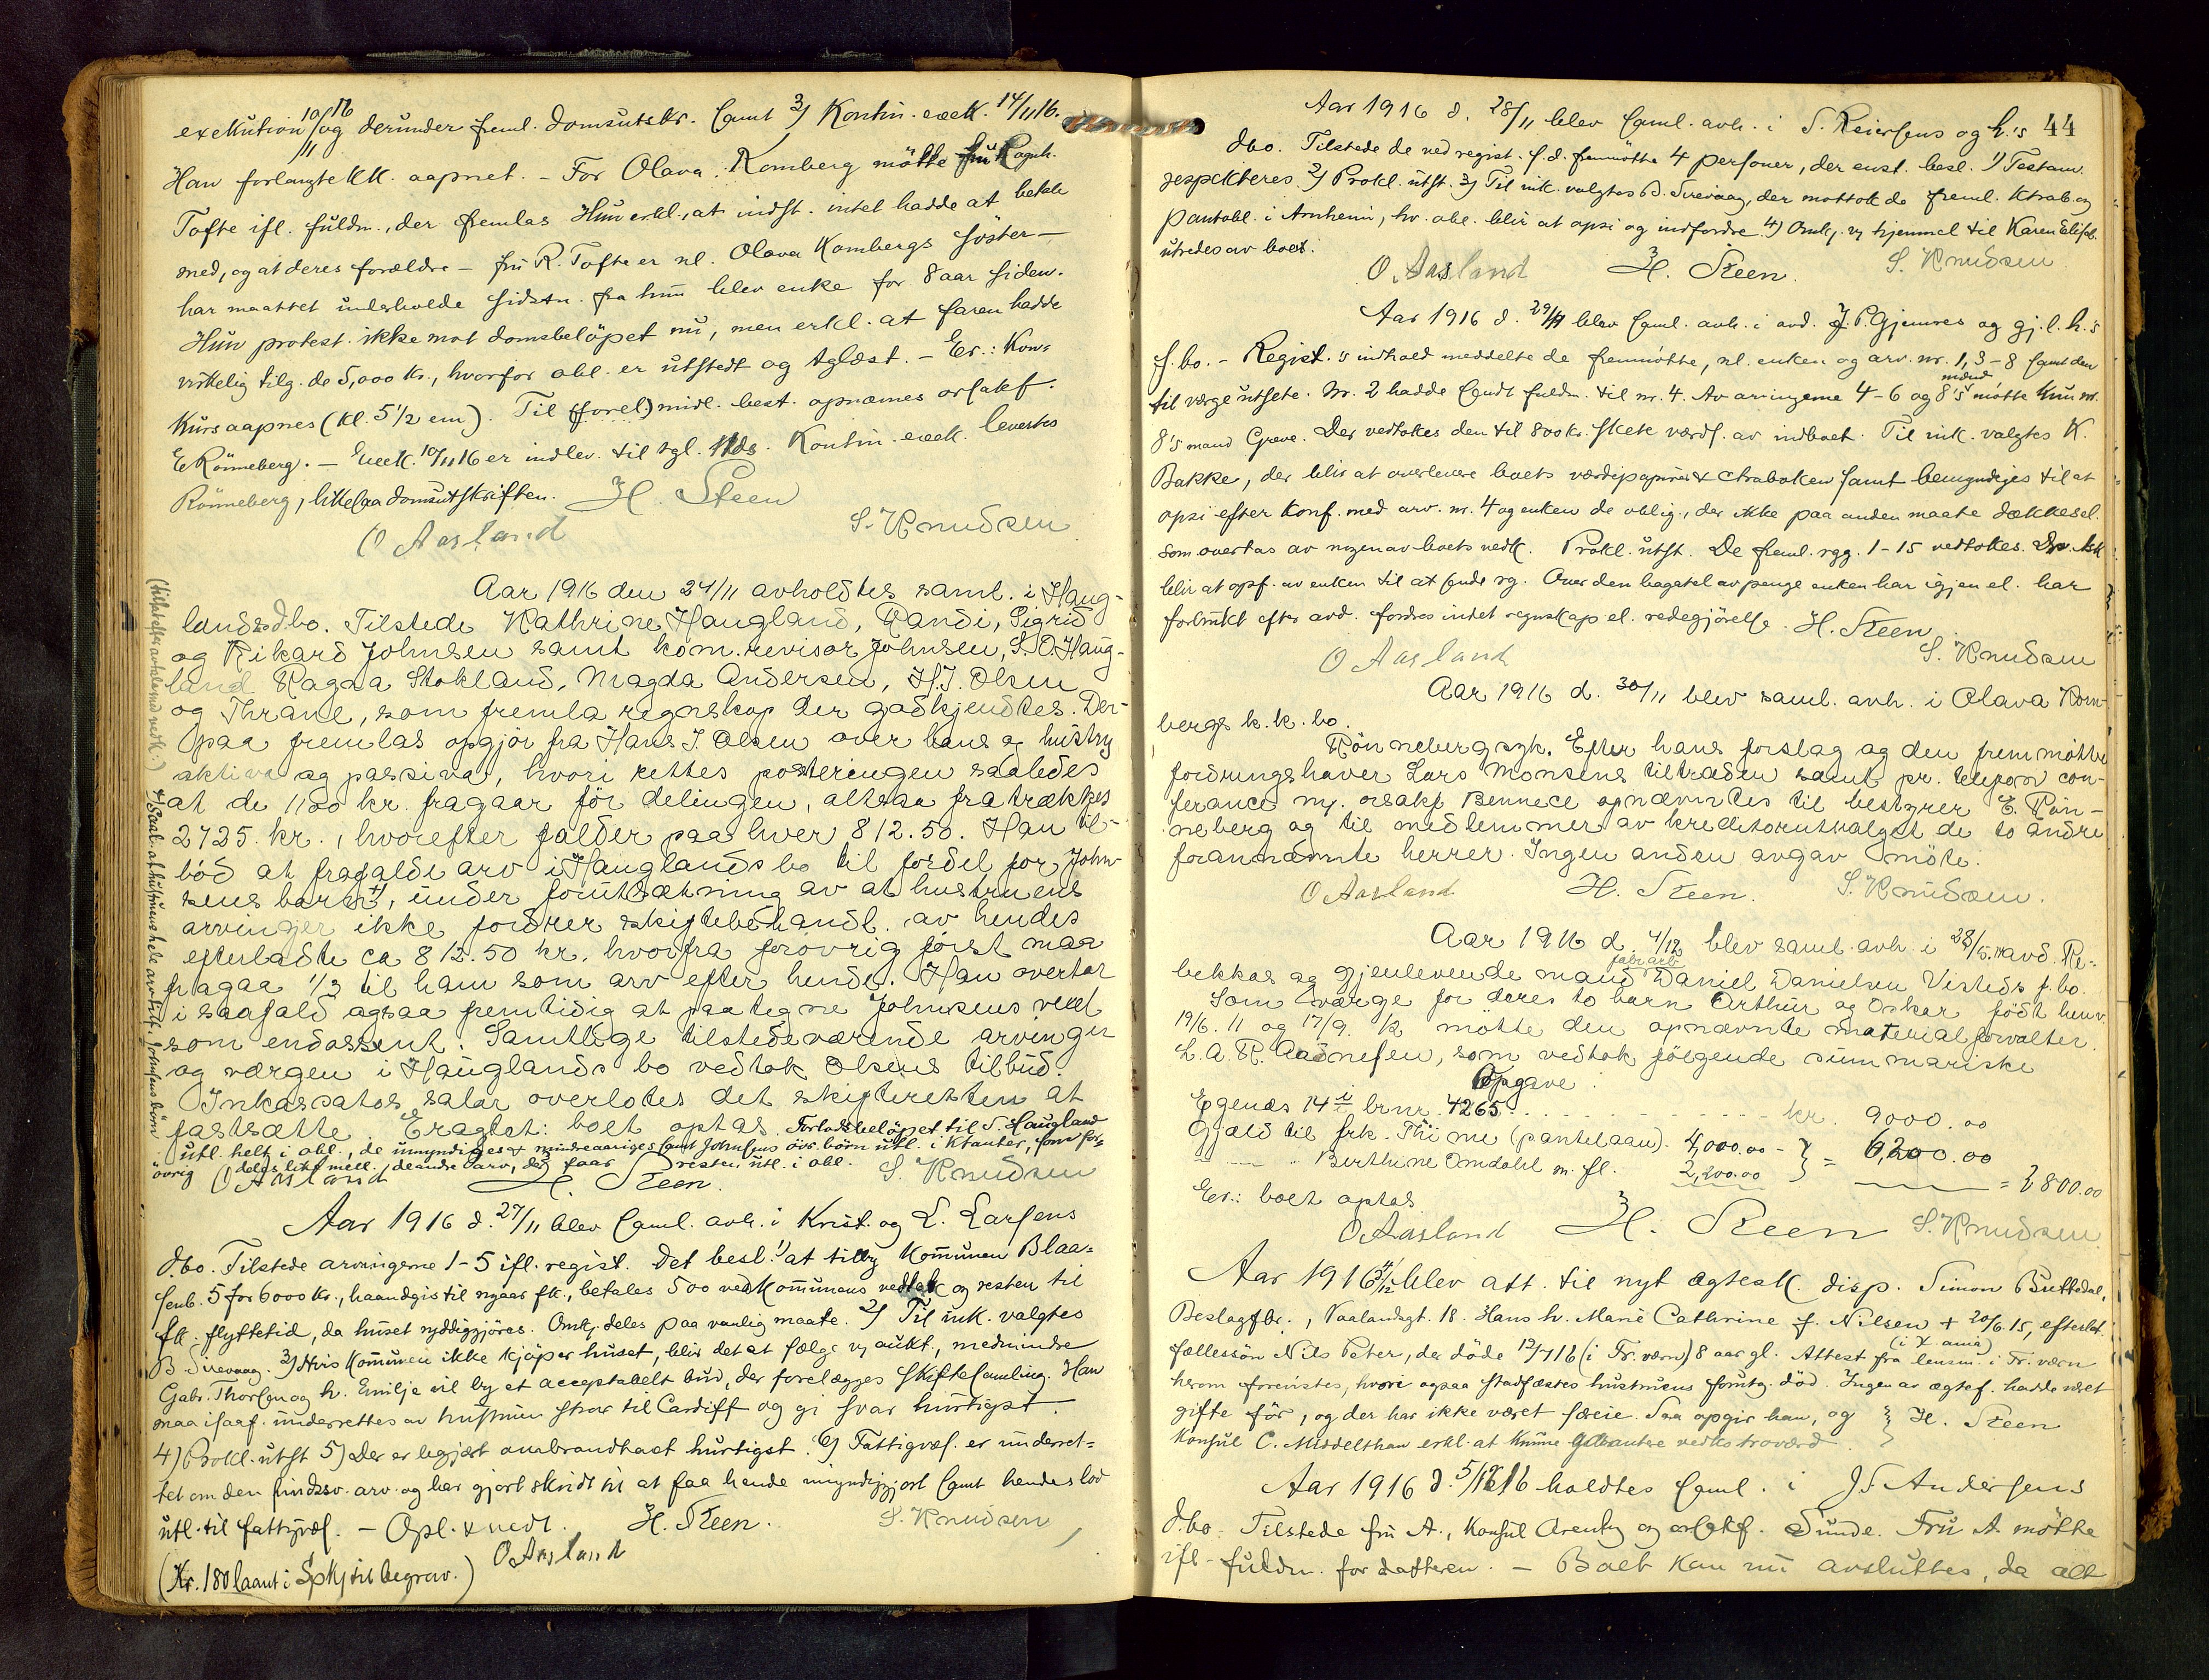 exekution 10/11 16 og derunder freml. domsutskr. samt 3) Kontin. exek. 14/11 16.
Han forlangte KK. aapnet. – For Olava Komberg mötte fru Ragnh.
Tofte ifl. fuldm., der fremlas Hun erkl., at indst. intet hadde at betale
med, og at deres forældre – fru R. Tofte er nl. Olava Kombergs söster –
har maattet underholde sidstn. fra hun blev enke for 8 aar siden.
Hun protest. ikke mot domsbelöpet nu, men erkl. at faren hadde
virkelig tilg. de 5,000 kr., hvorfor obl. er utstedt og tglæst. – Er.: Kon-
kurs aapnes (kl. 5½ em). Til (forel) midl. best. opnæmes orsakf.
E Rönneberg. – Exek. 10/11 16 er indlev. til tgl. ds. Kontin. exek. levertes
Rönneberg, likesaa domsutskriften. H. Steen
O Aasland S. Knudsen
Aar 1916 den 24/11 avholdtes saml. i Haug-
lands dbo. Tilstede Kathrine Haugland, Randi, Sigrid
og Rikard Johnsen samt kom.revisor Johnsen, S. O. Haug-
land Ragna Stokland, Magda Andersen, H.J. Olsen
og Thrane, som fremla regnskap der godkjendtes. Der-
paa fremlas opgjör fra Hans J. Olsen over hans og hustru
aktiva og passiva, hvori rettes posteringen saaledes
at de 1100 kr. fragaar för delingen, altsaa fratrækkes
2725 kr., hvorefter falder paa hver 812.50. Han til-
böd at frafalde arv i Hauglands bo til fordel for John-
sens barn +), under forutsætning av at hustruens
arvinger ikke fordrer skiftebehandl. av hendes
efterladte ca 812.50 kr. hvorfra forövrig först maa
fragaa 1/3 til ham som arv efter hende. Han overtar
i saafald ogsaa fremtidig at paategne Johnsens vexel
som endossent. Samtlige tilstedeværende arvinger
og værgen i Hauglands bo vedtok Olsens tilbud.
Inkassators salar overlotes det skifteretten at
fastsætte. Eragtet: boet optas. Forlodsbelöpet til S. Haugland
utl. helt i obl., de umyndiges & mindreaariges samt Johnsens övr. börn utl. i kontanter, som for-
övrig deles likt mell. de andre arv., der faar resten utl. i obl.
O Aasland H. Steen. S. Knudsen
(tilföiet efter avtalen med vedk.) +) Saal. at hustruens hele arv tilf. Johnsens börn
Aar 1916 d. 27/11 blev saml. avh. i Krist. og L. Larsens
dbo. Tilstede arvingerne 1-5 ifl. regist. Det besl. 1) at tilby Kommunen Blaa-
senb. 5 for 6000 kr., haandgis til nyaar fk., betales 500 ved Kommunens vedtak og resten til
fk. flyttetid, da huset ryddiggjöres. Omk. deles paa vanlig maate. 2) Til ink. valgtes
B Sirevaag. 3) Hvis Kommunen ikke kjöper huset, blir det at sælge v/ aukt., medmindre
Gabr. Thorsen og h. Emilje vil by et acceptabelt bud, der forelægges skiftesamling. Han
maa isaaf. underrettes av hustruen strax til Cardiff og gi svar hurtigst.
4) Prokl. utst 5) Der er begjært ombrandtaxt hurtigst. 6) Fattigvæs. er underret-
tet om den sindssv. arv. og har gjort skridt til at faa hende umyndiggjort samt hendes lod
utl. til fattigvæs. – Opl. & vedt. H. Steen. S. Knudsen
(Kr. 180 laant i Spkj til begrav.) O Aasland
44
Aar 1916 d. 28/11 blev saml. avh. i S. Reiersens og h.'s
dbo. Tilstede de ved regist. s.d. fremmötte 4 personer, der enst. besl. 1) Testam.
respekteres. 2) Prokl. utst. 3) Til ink. valgtes B. Sirevaag, der mottok de freml. ktrab. og
pantobl. i Arnheim, hv. obl. blir at opsi og indfordre. 4) Omk. v/ hjemmel til Karen Elisab.
utredes av boet.
O. Aasland H. Steen. S. Knudsen
Aar 1916 d. 29/11 blev saml. avh. i avd. J. P. Gjemres og gj.l. h.'s
f.bo. – Regist.'s indhold meddeltes de fremmötte, nl. enken og arv. nr. 1, 3-8 samt den
til værge utsete. Nr. 2 hadde sendt fuldm. til nr. 4. Av arvingerne 4-6 og 8's mænd mötte kun nr.
8's mand Greve. Der vedtokes den til 800 kr. skete værds. av indboet. Til ink. valgtes K.
Bakke, der blir at overlevere boets værdipapirer & ctraboken samt bemyndiges til at
opsi efter konf. med arv. nr. 4 og enken de oblig., der ikke paa anden maate dækkes el.
som overtas av nogen av boets vedk. Prokl. utst. De freml. rgg. 1-15 vedtokes.
blir at opf. av enken til at sende rg. Over den bagatel av penge enken har igjen el. har
forbrukt efter avd. fordres intet regnskap el. redegjörelse. H. Steen
O Aasland S. Knudsen
Aar 1916 d. 30/11 blev saml. avh. i Olava Kom-
bergs k.k. bo.
Rönneberg syk. Efter hans forslag og den fremmötte
fordringshaver Lars Monsens tiltræden samt pr. telefon con-
ferance m. orsakf Bennece opnævntes til bestyrer E. Rön-
neberg og til medlemmer av kreditorutvalget de to andre
forannævnte herrer. Ingen anden avgav möte.
O Aasland H. Steen. S. Knudsen.
Aar 1916 d. 4/12 blev saml. avh. i 28/5. avd. Re-
bekkas og gjenlevende mand fabr.arb Daniel Danielsen Visteds f.bo.
Som værge for deres to barn Arthur og Oskar födt henv.
19/6. 11 og 17/9. 12 mötte den opnævnte materialforvalter
L. A. R. Aadnesen, som vedtok fölgende summariske
Opgave:
Egenæs 14 i brnr. 4265 . . . . . . kr. 9000.00
Gjæld til frk. Thime (pantelaan). 4,000.00 - } = 6,200.00
— " — Berthine Omdahl m. fl. 2,200.00 = 2800.00
Er.: boet optas
O Aasland H. Steen S. Knudsen
Aar 1916 4/12 blev att. til nyt ægtesk. disp. Simon Buttedal,
Beslagfbr., Vaalandsgt. 18. Hans h. Marie Cathrine f. Nilsen + 20/6. 15, efterlot.
fællessön Nils Peter, der döde 12/7 16 (i Fr. værn) 8 aar gl. Attest fra lensm. i Fr. værn
herom forevistes, hvori ogsaa stadfæstes hustruens forutg. död. Ingen av ægtef. hadde været
gifte för, og der har ikke været særeie. Saa opgir han, og } H. Steen
Konsul C. Middelthon erkl. at kunne garantere vedks troværd.
Aar 1916 d. 5/12 16 holdtes saml. i J S Andersens
d.bo. Tilstede fru A., Konsul Arentz og orsakf. Sunde. Fru A. mötte
ifl. fuldm. for datteren. – Boet kan nu avsluttes, da alt